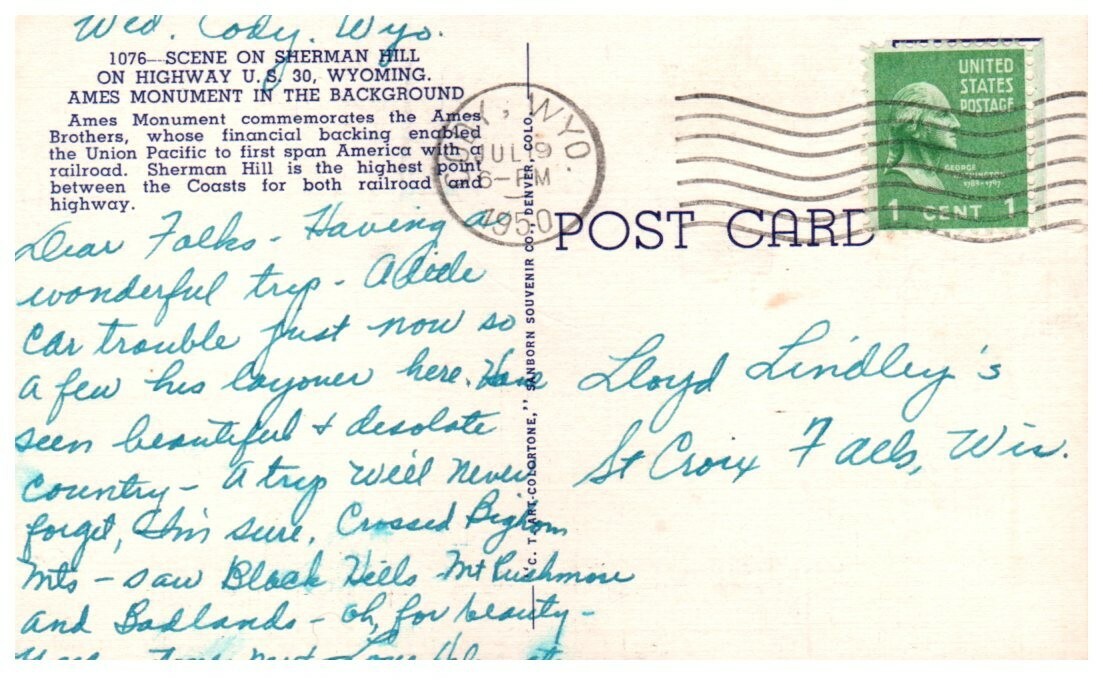 Wed. Cody, Wyo.
1076—SCENE ON SHERMAN HILL
ON HIGHWAY U.S. 30, WYOMING.
AMES MONUMENT IN THE BACKGROUND
Ames Monument commemorates the Ames
Brothers, whose financial backing enabled
the Union Pacific to first span America with a
railroad. Sherman Hill is the highest point
between the Coasts for both railroad and
highway.
Dear Folks - Having a
wonderful trip - A little
car trouble just now so
a few hrs layover here. Have
seen beautiful & desolate
country - A trip we'll never
forget, I'm sure. Crossed Bighorn
Mts - saw Black Hills Mt Rushmore
and Badlands - oh, for beauty -
"C. T. ART-COLORTONE," SANBORN SOUVENIR CO., DENVER, COLO.
CODY, WYO.
JUL 19
6-PM
1950
POST CARD
UNITED
STATES
POSTAGE
GEORGE
WASHINGTON
1789-1797
1 CENT 1
Lloyd Lindley's
St Croix Falls, Wis.